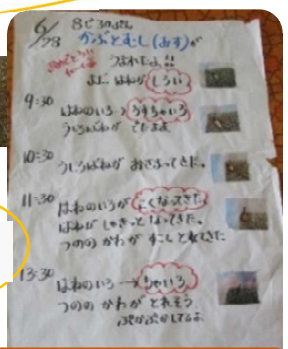 6/28 8じ30ぷん
かぶとむし(おす)が
うまれたよ!!
まだ はねが しろい
9:30
はねのいろ→うすちゃいろ
うしろばねが でたまま
10:30
うしろばねが おさまってきた。
11:30
はねのいろが こくなってきた
はねが しゃきっと なってきた。
つのの かわが すこし とれてきた
13:30
はねのいろ→ちゃいろ
つのの かわが とれそう
ぷかぷかしてるよ